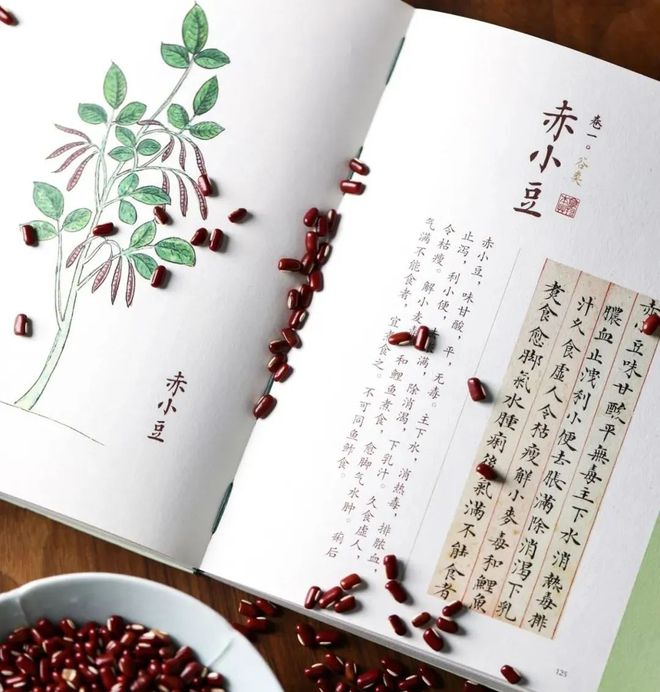 赤小豆
卷一。谷类
赤小豆
赤小豆味甘酸平無毒主下水消熱毒排
膿血止洩利小便去脹滿除消渴下乳
汁久食虛人令枯瘦解小麥毒和鯉魚
煮食愈脚氣水腫痢氣滿不能食者
赤小豆,味甘酸,平,无毒。主下水,消热毒,排脓血,
止泻,利小便,满,除消渴,下乳汁。久食虚人,
令枯瘦。解小麦和鲤鱼煮食,愈脚气水肿。痢后
气满不能食者,宜煮食之。不可同鱼鲊食。
125